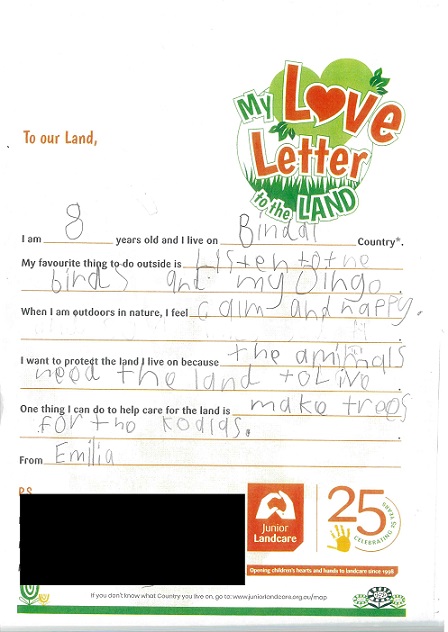 My Love
Letter
to the LAND
To our Land,
I am 8 years old and I live on Bindal Country*.
My favourite thing to do outside is Listen to the
birds and my Dingo.
When I am outdoors in nature, I feel calm and happy.
I want to protect the land I live on because the amimals
need the land to Live.
One thing I can do to help care for the land is make trees
for the koalas.
From Emilia
P.S.
Junior
Landcare
25 YEARS
CELEBRATING 25
Opening children's hearts and hands to landcare since 1998
If you don't know what Country you live on, go to: www.juniorlandcare.org.au/map